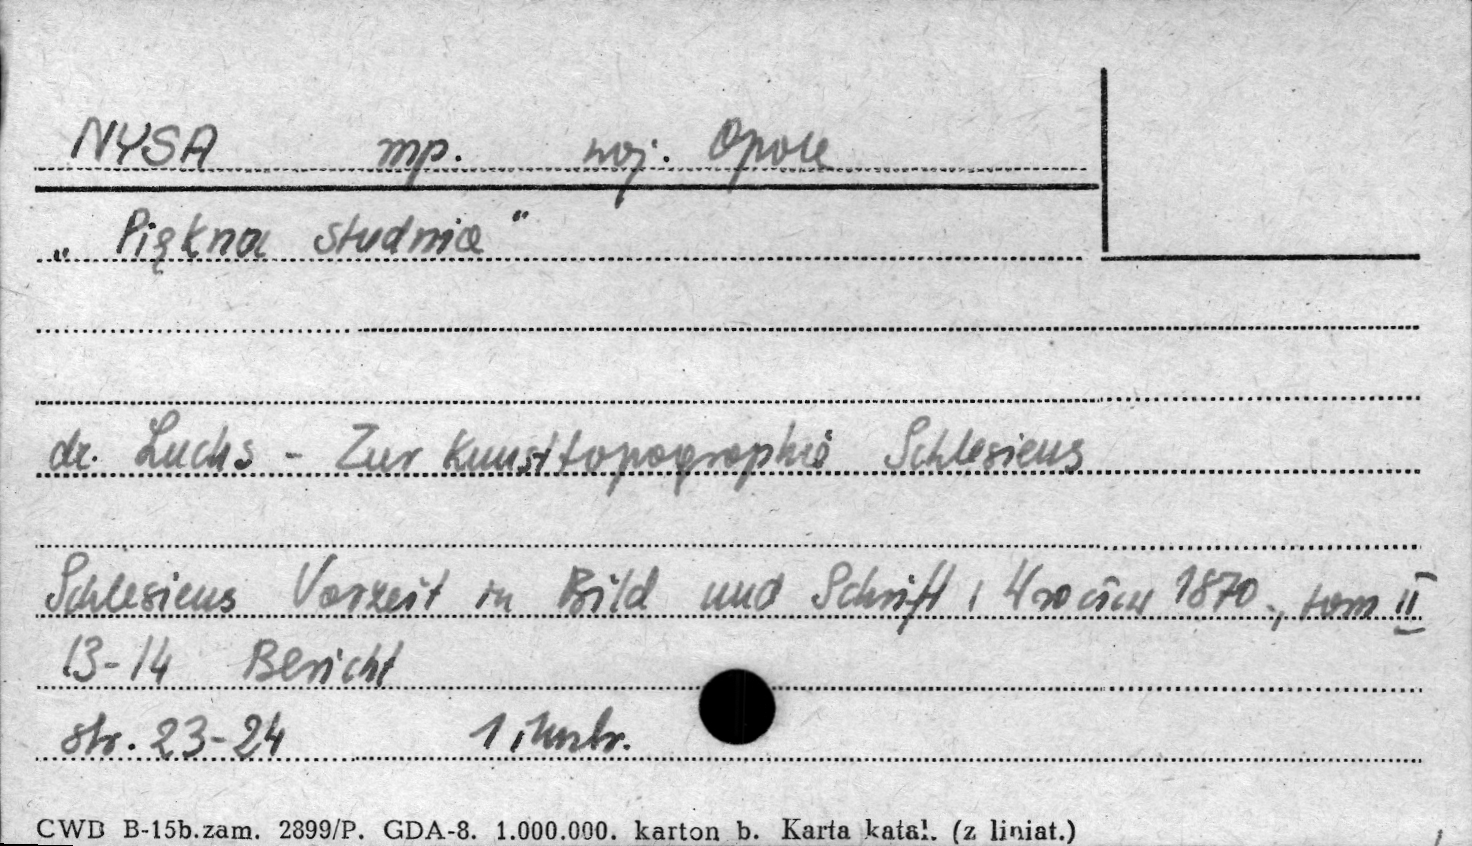 NYSA mp. woj. Opole
„Piękna studnia"
dr. Luchs - Zur Kunsttopographie Schlesiens
Schlesiens Vorzeit in Bild und Schrift, Wrocław 1870., tom II
13-14 Bericht
str. 23-24 1 ilustr.
CWD B-15b.zam. 2899/P. GDA-8. 1.000.000. karton b. Karta katal. (z liniat.)